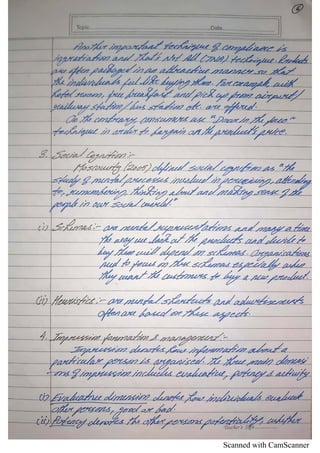 6
Topic Date
Another important technique of compliance is
ingratiation and that's not all (TNA) technique. Products
are often packaged in an attractive manner so that
the individuals feel like buying them. For example, with
hotel room, free breakfast and pick up from airport/
railway station/bus station etc. are offered.
On the contrary, consumers use "Down in the face"
technique in order to bargain on the products price.
3. Social Cognition:-
(2005) defined social cognition as "the
study of mental processes involved in perceiving, attending
to, remembering, thinking about and making sense of the
people in our social world"
(i) Schemas:- are mental representations and many a time
the way we look at the products and decide to
buy them will depend on schemas. Organisations
need to focus on these schemas especially when
they want the customers to buy a new product.
(ii) Heuristics:- are mental shortcuts and advertisements
often are based on these aspects.
4. Impression formation & management:-
Impression denotes how information about a
particular person is organised. The three main dimensi
-ons of impression includes evaluative, potency & activity.
(i) Evaluative dimension denotes how individuals evaluate
other persons, good or bad.
(ii) Potency denotes the other persons potentiality, whether
Teacher's Sign
Scanned with CamScanner